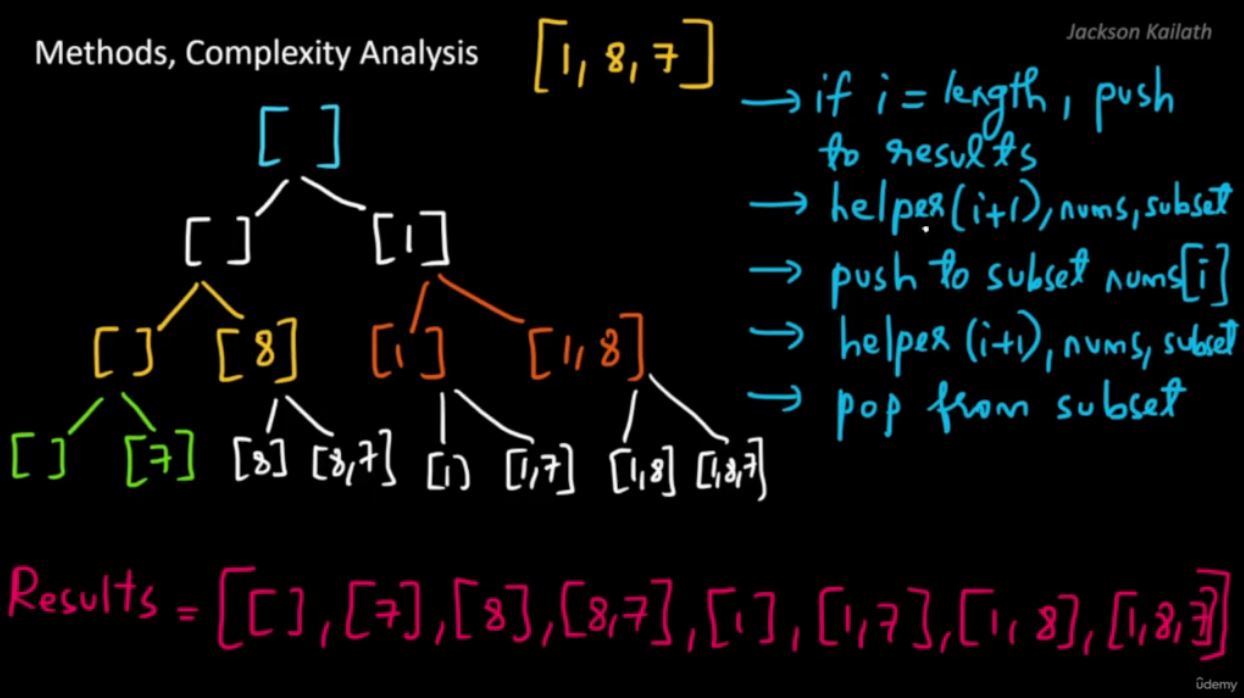 Methods, Complexity Analysis
[1, 8, 7]
Jackson Kailath
→ if i = length, push
to results
→ helper(i+1), nums, subset
→ push to subset nums[i]
→ helper (i+1), nums, subset
→ pop from subset
[ ]
[ ] [1]
[ ] [8] [1] [1,8]
[ ] [7] [8] [8,7] [1] [1,7] [1,8] [1,8,7]
Results = [[ ], [7], [8], [8,7], [1], [1,7], [1, 8], [1,8,7]]
ûdemy